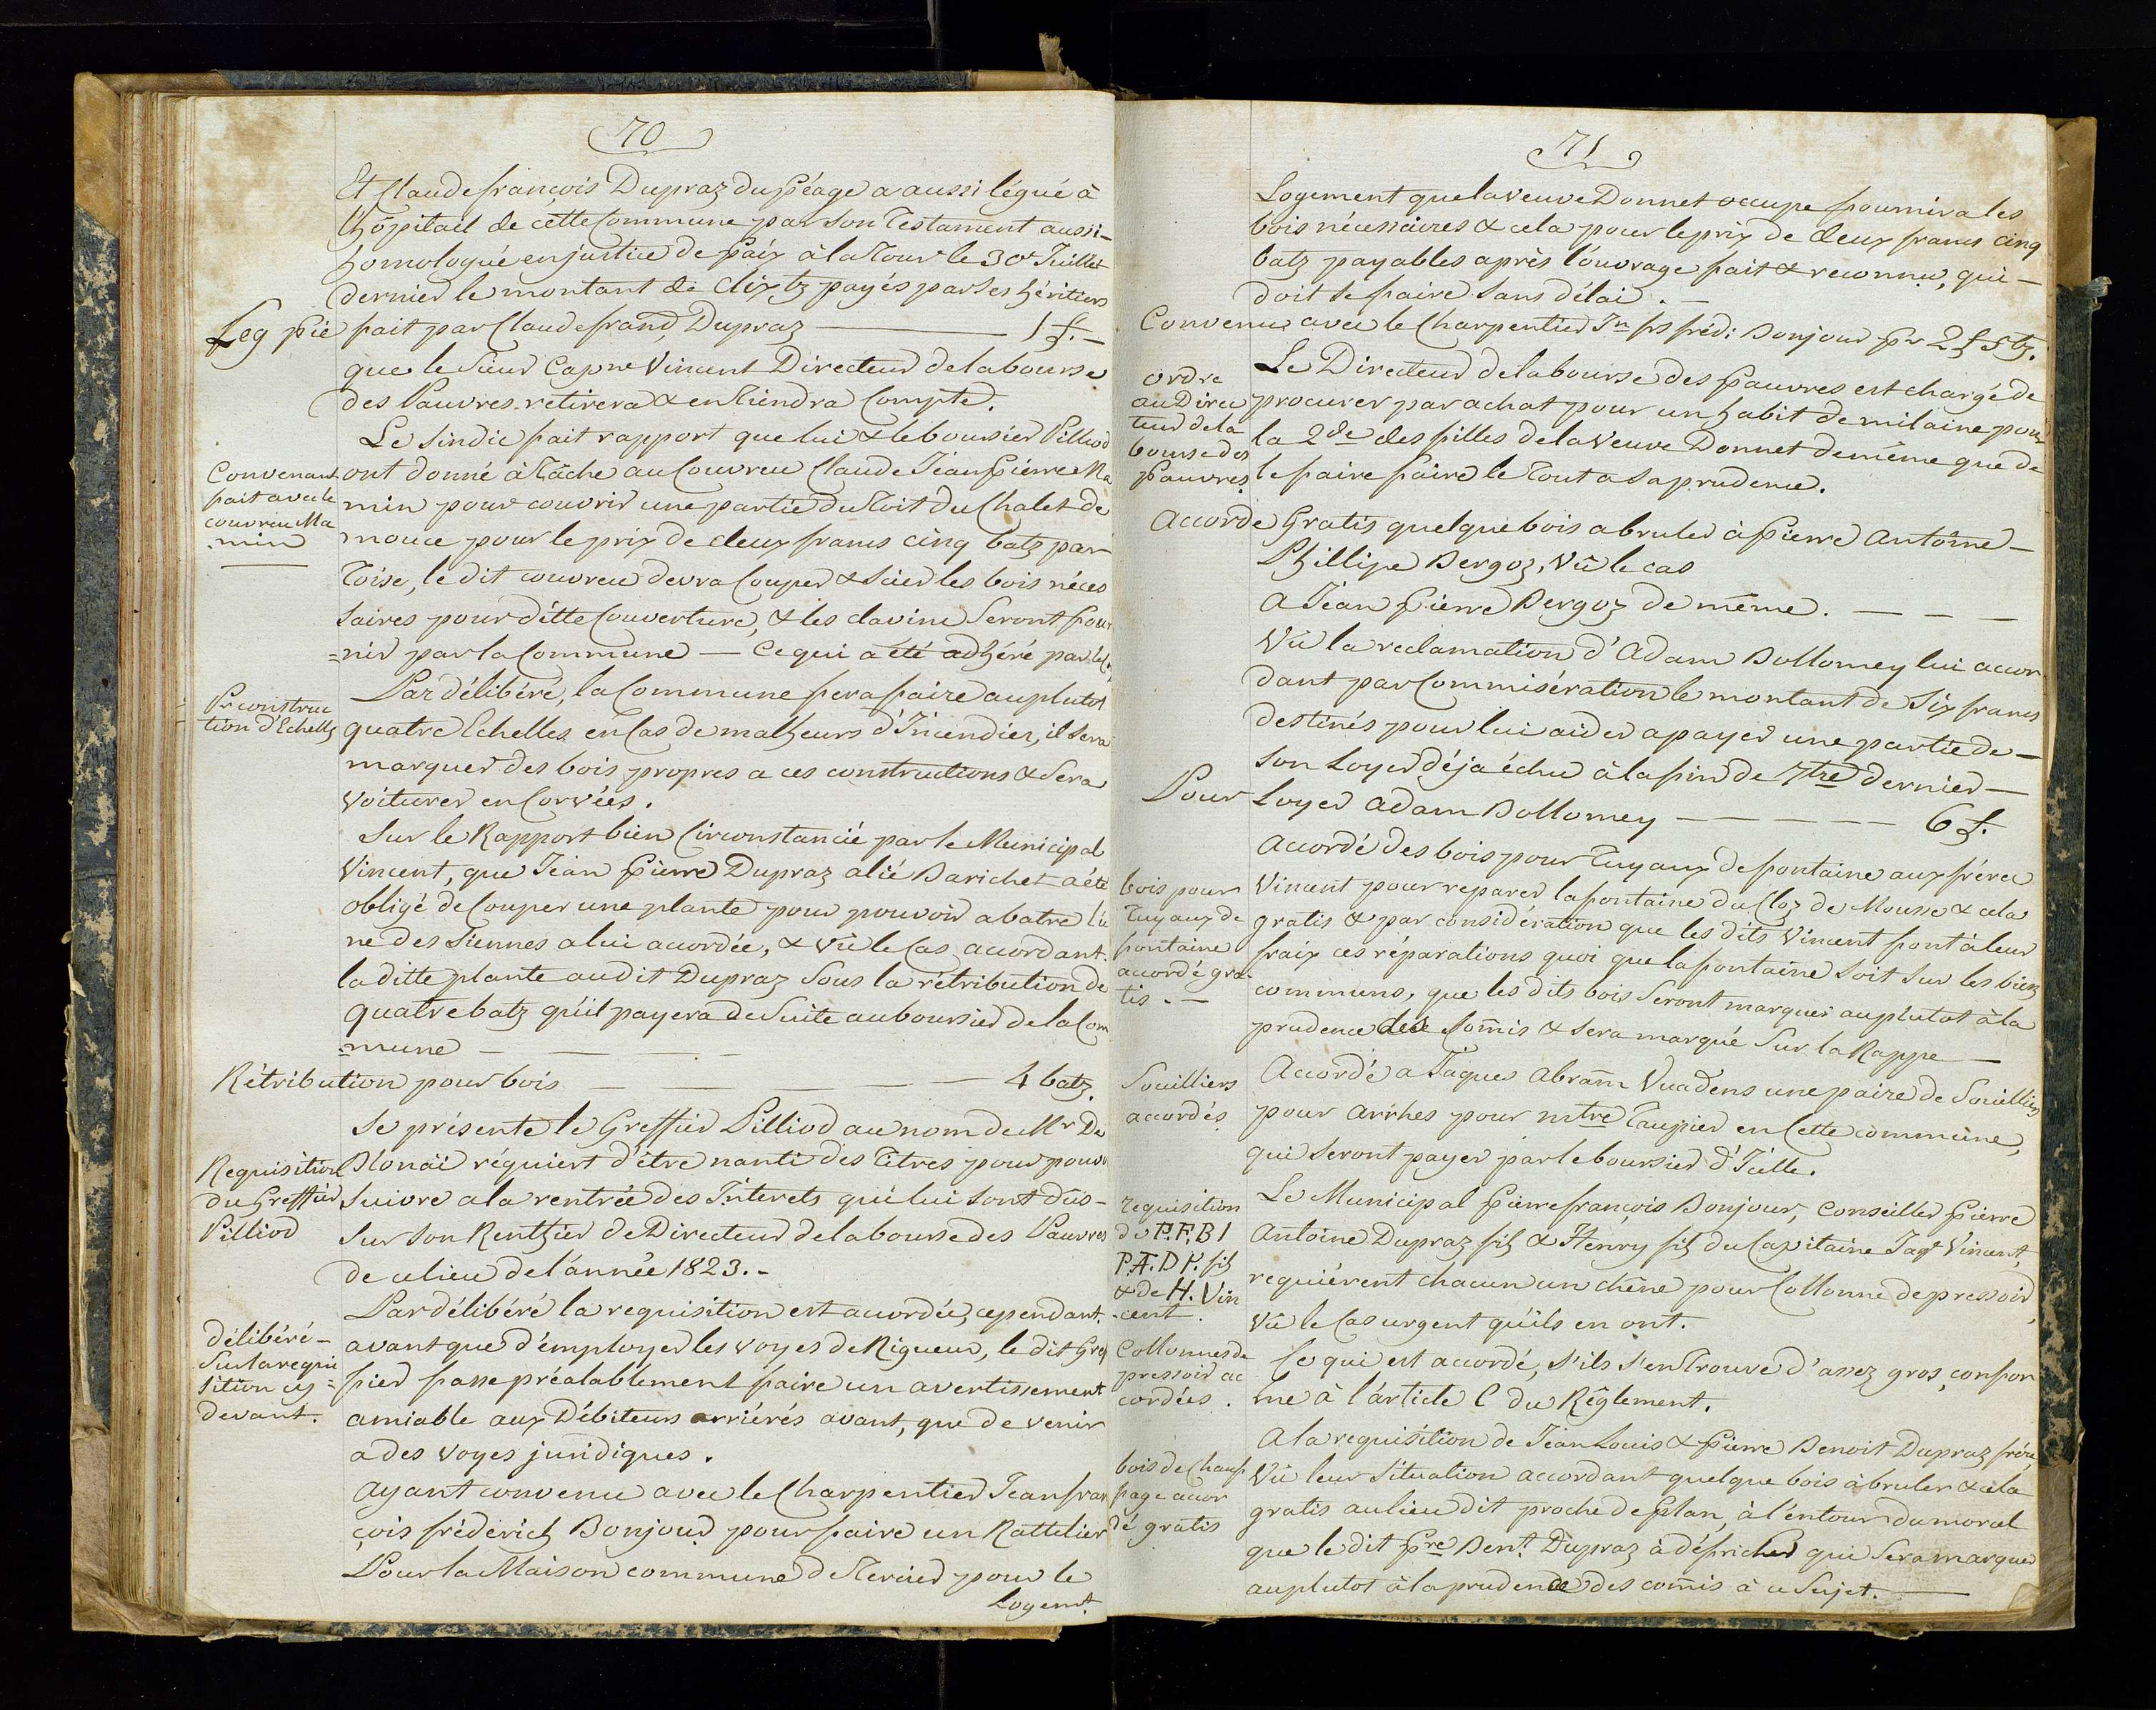 70
Et Claude françois Dupraz du Péage a aussi légué à
l'hôpitail de cette Commune par son Testament aussi-
homologué en justice de Paix à la Tour le 30e Juillet
dernier le montant de dix bz payés par ses héritiers
Leg pie fait par Claude franç, Dupraz — 1 f. —
que le Sieur Capne Vincent Directeur de la bourse
des Pauvres retirera & en tiendra Compte.
Le Sindic fait rapport que lui & le boursier Pilliod
Convenant
fait avec le
couvreu Ma
min
ont donné à Tâche au Couvreu Claude Jean Pierre Ma
min pour couvrir une partie du Toit du Chalet de
mouce pour le prix de deux francs cinq batz par
Toise, le dit couvreu devra Couper & Scier les bois néces
saires pour ditte Couverture, & les clavins Seront four
=nir par la Commune — Ce qui a été adhéré par
Pr construc
tion d'Echells
Par délibéré, la Commune fera faire au plutot
quatre Echelles en Cas de malheurs d'Incendier, il sera
marquer des bois propres a ces constructions & Sera
voiturer en Corvées.
Sur le Rapport bien Circonstancié par le Municipal
Vincent, que Jean Pierre Dupraz alié Barichet a été
obligé de Couper une plante pour pouvoir abatre l'u
ne des Siennes a lui accordée, & vû le Cas accordant
la ditte plante au dit Dupraz Sous la rétribution de
quatre batz qu'il payera de Suite au boursier de la Com
=mune — — — —
Rétribution pour bois — — — 4 batz.
Se présente le Greffier Pilliod au nom de Mr De
Requisition
du Greffier
Pilliod
Blonäi réquiert d'être nanti des Titres pour pouvoi
suivre a la rentrée des Interets qui lui sont dûs-
sur son Renthier de Directeur de la bourse des Pauvres
de ce lieu de l'année 1823. -
Par délibéré la requisition est acordée, cependant
délibéré -
Sur la requi
sition cy =
devant.
avant que d'employer les voyes de Rigueur, le dit Gref
fier fasse préalablement faire un avertissement
amiable aux Débiteurs arriérés avant, que de venir
a des voyes juridiques.
Ayant convenu avec le Charpentier Jean fran
çois fréderich Bonjour pour faire un Rattelier
Pour la Maison commune de Tercier pour le
Logemt.
71
Logement que la veuve Donnet occupe fournira les
bois nécessaires & cela pour le prix de deux francs cinq
batz payables après l'ouvrage fait & reconnu, qui —
doit se faire sans délai. —
Convenu avec le Charpentier Jn frs fréd: Bonjour pr 2 f 5 bz.
ordre
au Direc
teur de la
bourse des
Pauvres.
Le Directeur de la bourse des Pauvres est chargé de
procurer par achat pour un habit de milaine pour
la 2de des filles de la veuve Donnet de même que de
le faire faire le Tout a sa prudence.
Accordé Gratis quelque bois a bruler à Pierre Antoine —
Phillipe Bergoz, vû le cas
A Jean Pierre Bergoz de même. — — —
Vû la reclamation d'Adam Dollomey lui accor
dant par Commisération le montant de Six francs
destinés pour lui aider a payer une partie de —
son Loyer déja échu à la fin de 7bre dernier —
Pour Loyer Adam Dollomey — — — — — 6 f.
bois pour
Tuyaux de
fontaine
acordé gra-
tis. —
Accordé des bois pour Tuyaux de fontaine aux fréres
Vincent pour reparer la fontaine du Cloz de Mousse & cela
gratis & par considération que les dits Vincent font à leur
fraix ces réparations quoi que la fontaine Soit Sur les biens
communs, que les dits bois Seront marquer au plutot à la
prudence des Com̃is & sera marqué Sur la Rappe —
Souilliers
accordés
Accordé a Jaques Abram̃ Vuadens une paire de Souilliers
pour arrhes pour mtre Taupier en Cette commune,
qui seront payer par le boursier d'Icelle.
requisition
de P.F.B!
P.A.D P. fils
& de H. Vin
cent.
Le Municipal Pierre françois Bonjour, Conseiller Pierre
Antoine Dupraz fils & Henry fils du Capitaine Jaqs Vincent,
requiérent chacun un chêne pour Collonne de pressoir,
vû le Cas urgent qu'ils en ont.
Collonnes de
pressoir ac
cordées.
Ce qui est accordé, s'ils s'en Trouve d'assez gros, confor
me à l'article C du Réglement.
bois de chauf
fage accor
dé gratis
A la requisition de Jean Louis & Pierre Benoit Dupraz frére
vû leur Situation accordant quelque bois à bruler & cela
gratis au lieu dit proche de Plan, à l'entour du morcel
que le dit Pre Bent. Dupraz à défricher qui sera marquer
au plutot à la prudence des com̃is à ce Sujet. —